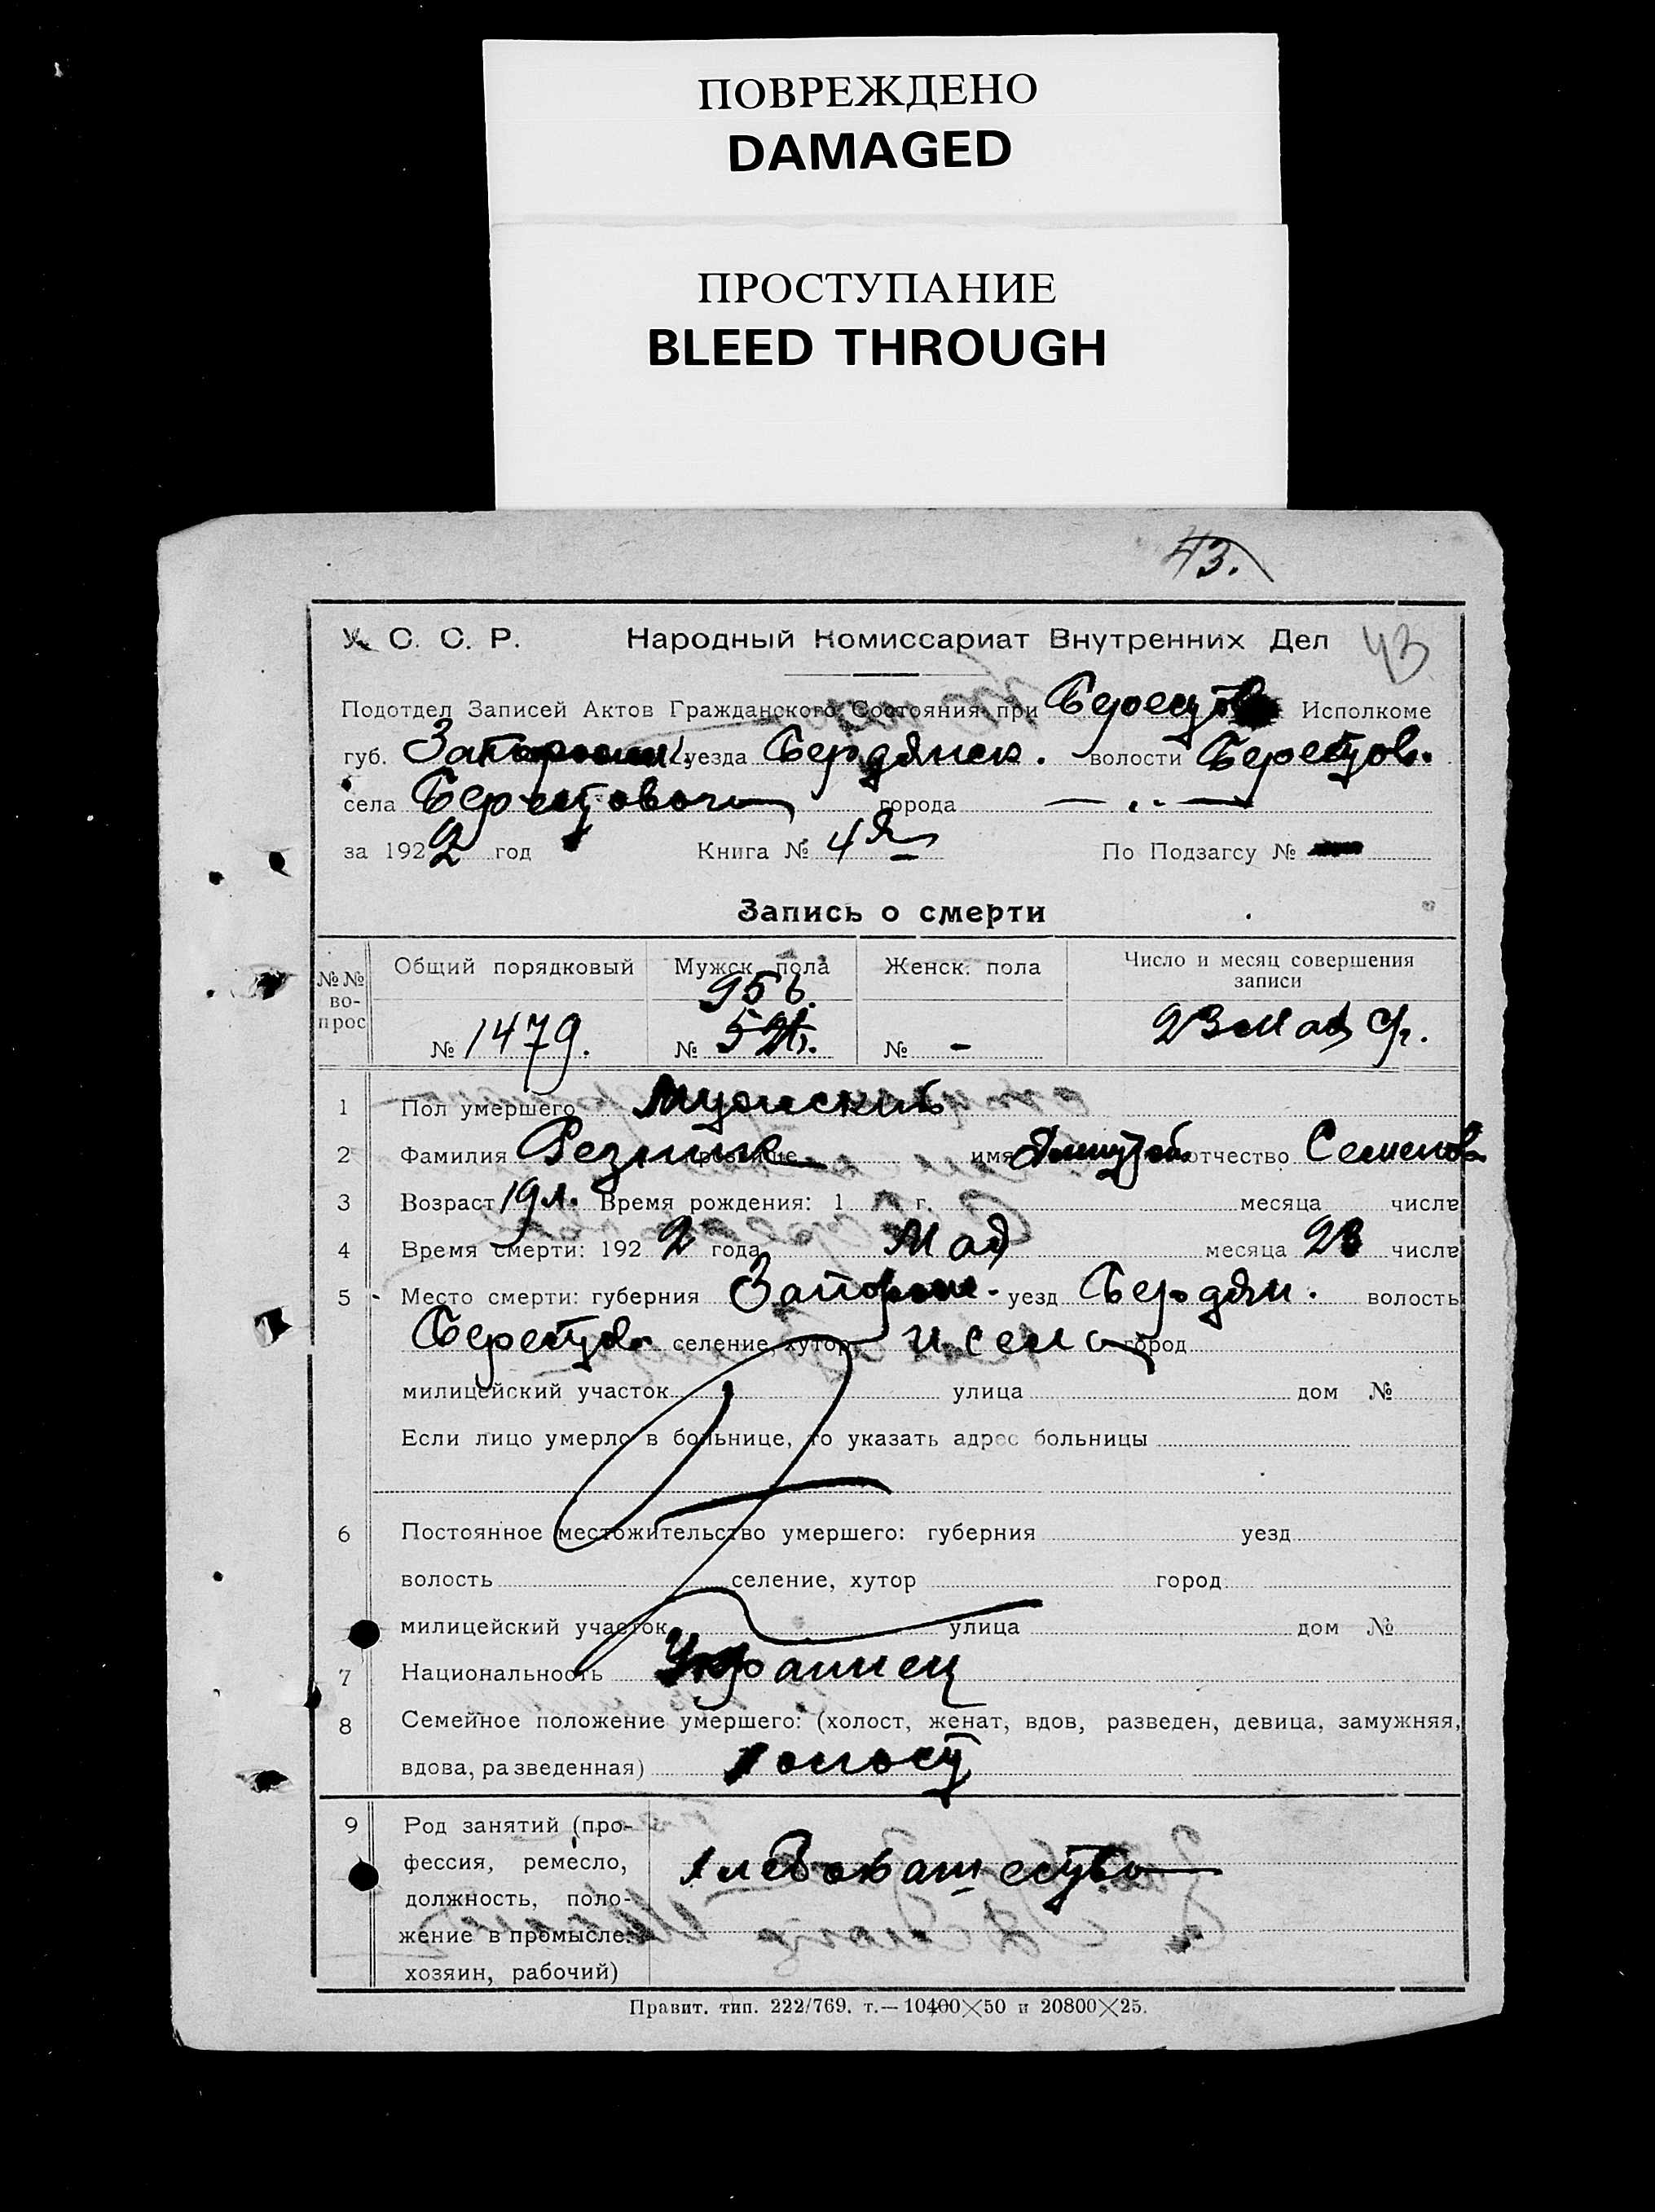 ПОВРЕЖДЕНО
DAMAGED
ПРОСТУПАНИЕ
BLEED THROUGH
43.
У. С. С. Р. Народный Комиссариат Внутренних Дел 43
Подотдел Записей Актов Гражданского Состояния при Берестов Исполкоме
губ. Запорож. уезда Бердянск. волости Берестов.
села Берестового города — „ —
за 1922 год Книга № 4я По Подзагсу №
Запись о смерти
№№ вопрос Общий порядковый Мужск. пола Женск. пола Число и месяц совершения записи
956.
№ 1479. № № - 23 мая
1 Пол умершего Мужский
2 Фамилия Резник прозвище имя Дмитрий отчество Семенов
3 Возраст 19 л. Время рождения: 1 г. месяца числа
4 Время смерти: 1922 года Мая месяца 23 числа
5 Место смерти: губерния Запорож. уезд Бердян. волость
Берестов селение, хутор и село город
милицейский участок улица дом №
Если лицо умерло в больнице, то указать адрес больницы
6 Постоянное местожительство умершего: губерния уезд
волость селение, хутор город
милицейский участок улица дом №
7 Национальность Украинец
8 Семейное положение умершего: (холост, женат, вдов, разведен, девица, замужняя,
вдова, разведенная) холост
9 Род занятий (про-
фессия, ремесло, хлебопашество
должность, поло-
жение в промысле:
хозяин, рабочий)
Правит. тип. 222/769. т.—10400×50 и 20800×25.